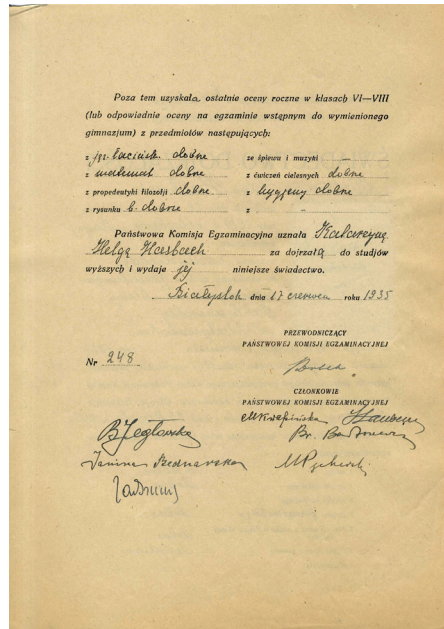 Poza tem uzyskała, ostatnie oceny roczne w klasach VI—VIII
(lub odpowiednie oceny na egzaminie wstępnym do wymienionego
gimnazjum) z przedmiotów następujących:
z jęz. łacińsk. dobre ze śpiewu i muzyki —
z matemat. dobre z ćwiczeń cielesnych dobre
z propedeutyki filozofji dobre z hygjeny dobre
z rysunku b. dobre z
Państwowa Komisja Egzaminacyjna uznała Katarzynę
Helgę Hasbach za dojrzałą do studjów
wyższych i wydaje jej niniejsze świadectwo.
Białystok dnia 17 czerwca roku 1935
PRZEWODNICZĄCY
PAŃSTWOWEJ KOMISJI EGZAMINACYJNEJ
Nr 248
CZŁONKOWIE
PAŃSTWOWEJ KOMISJI EGZAMINACYJNEJ
MKwapińska
BJegłowska
Janina Bednarska